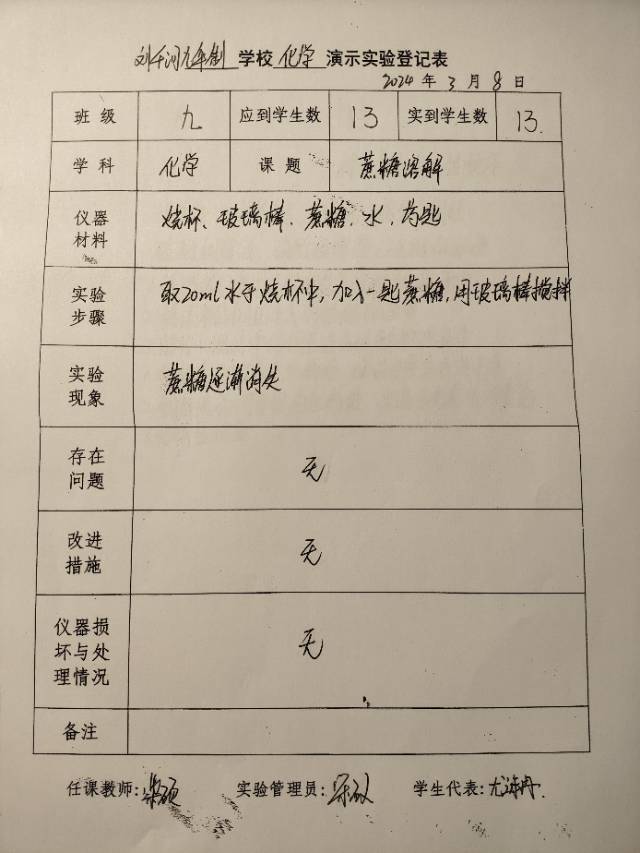 刘千河九年制 学校 化学 演示实验登记表
2024 年 3 月 8 日
班 级 九 应到学生数 13 实到学生数 13.
学 科 化学 课 题 蔗糖溶解
仪器 烧杯、玻璃棒、蔗糖、水、药匙
材料
实验 取20ml水于烧杯中,加入一匙蔗糖,用玻璃棒搅拌
步骤
实验 蔗糖逐渐消失
现象
存在 无
问题
改进 无
措施
仪器损
坏与处 无
理情况
备注
任课教师: 实验管理员: 学生代表: